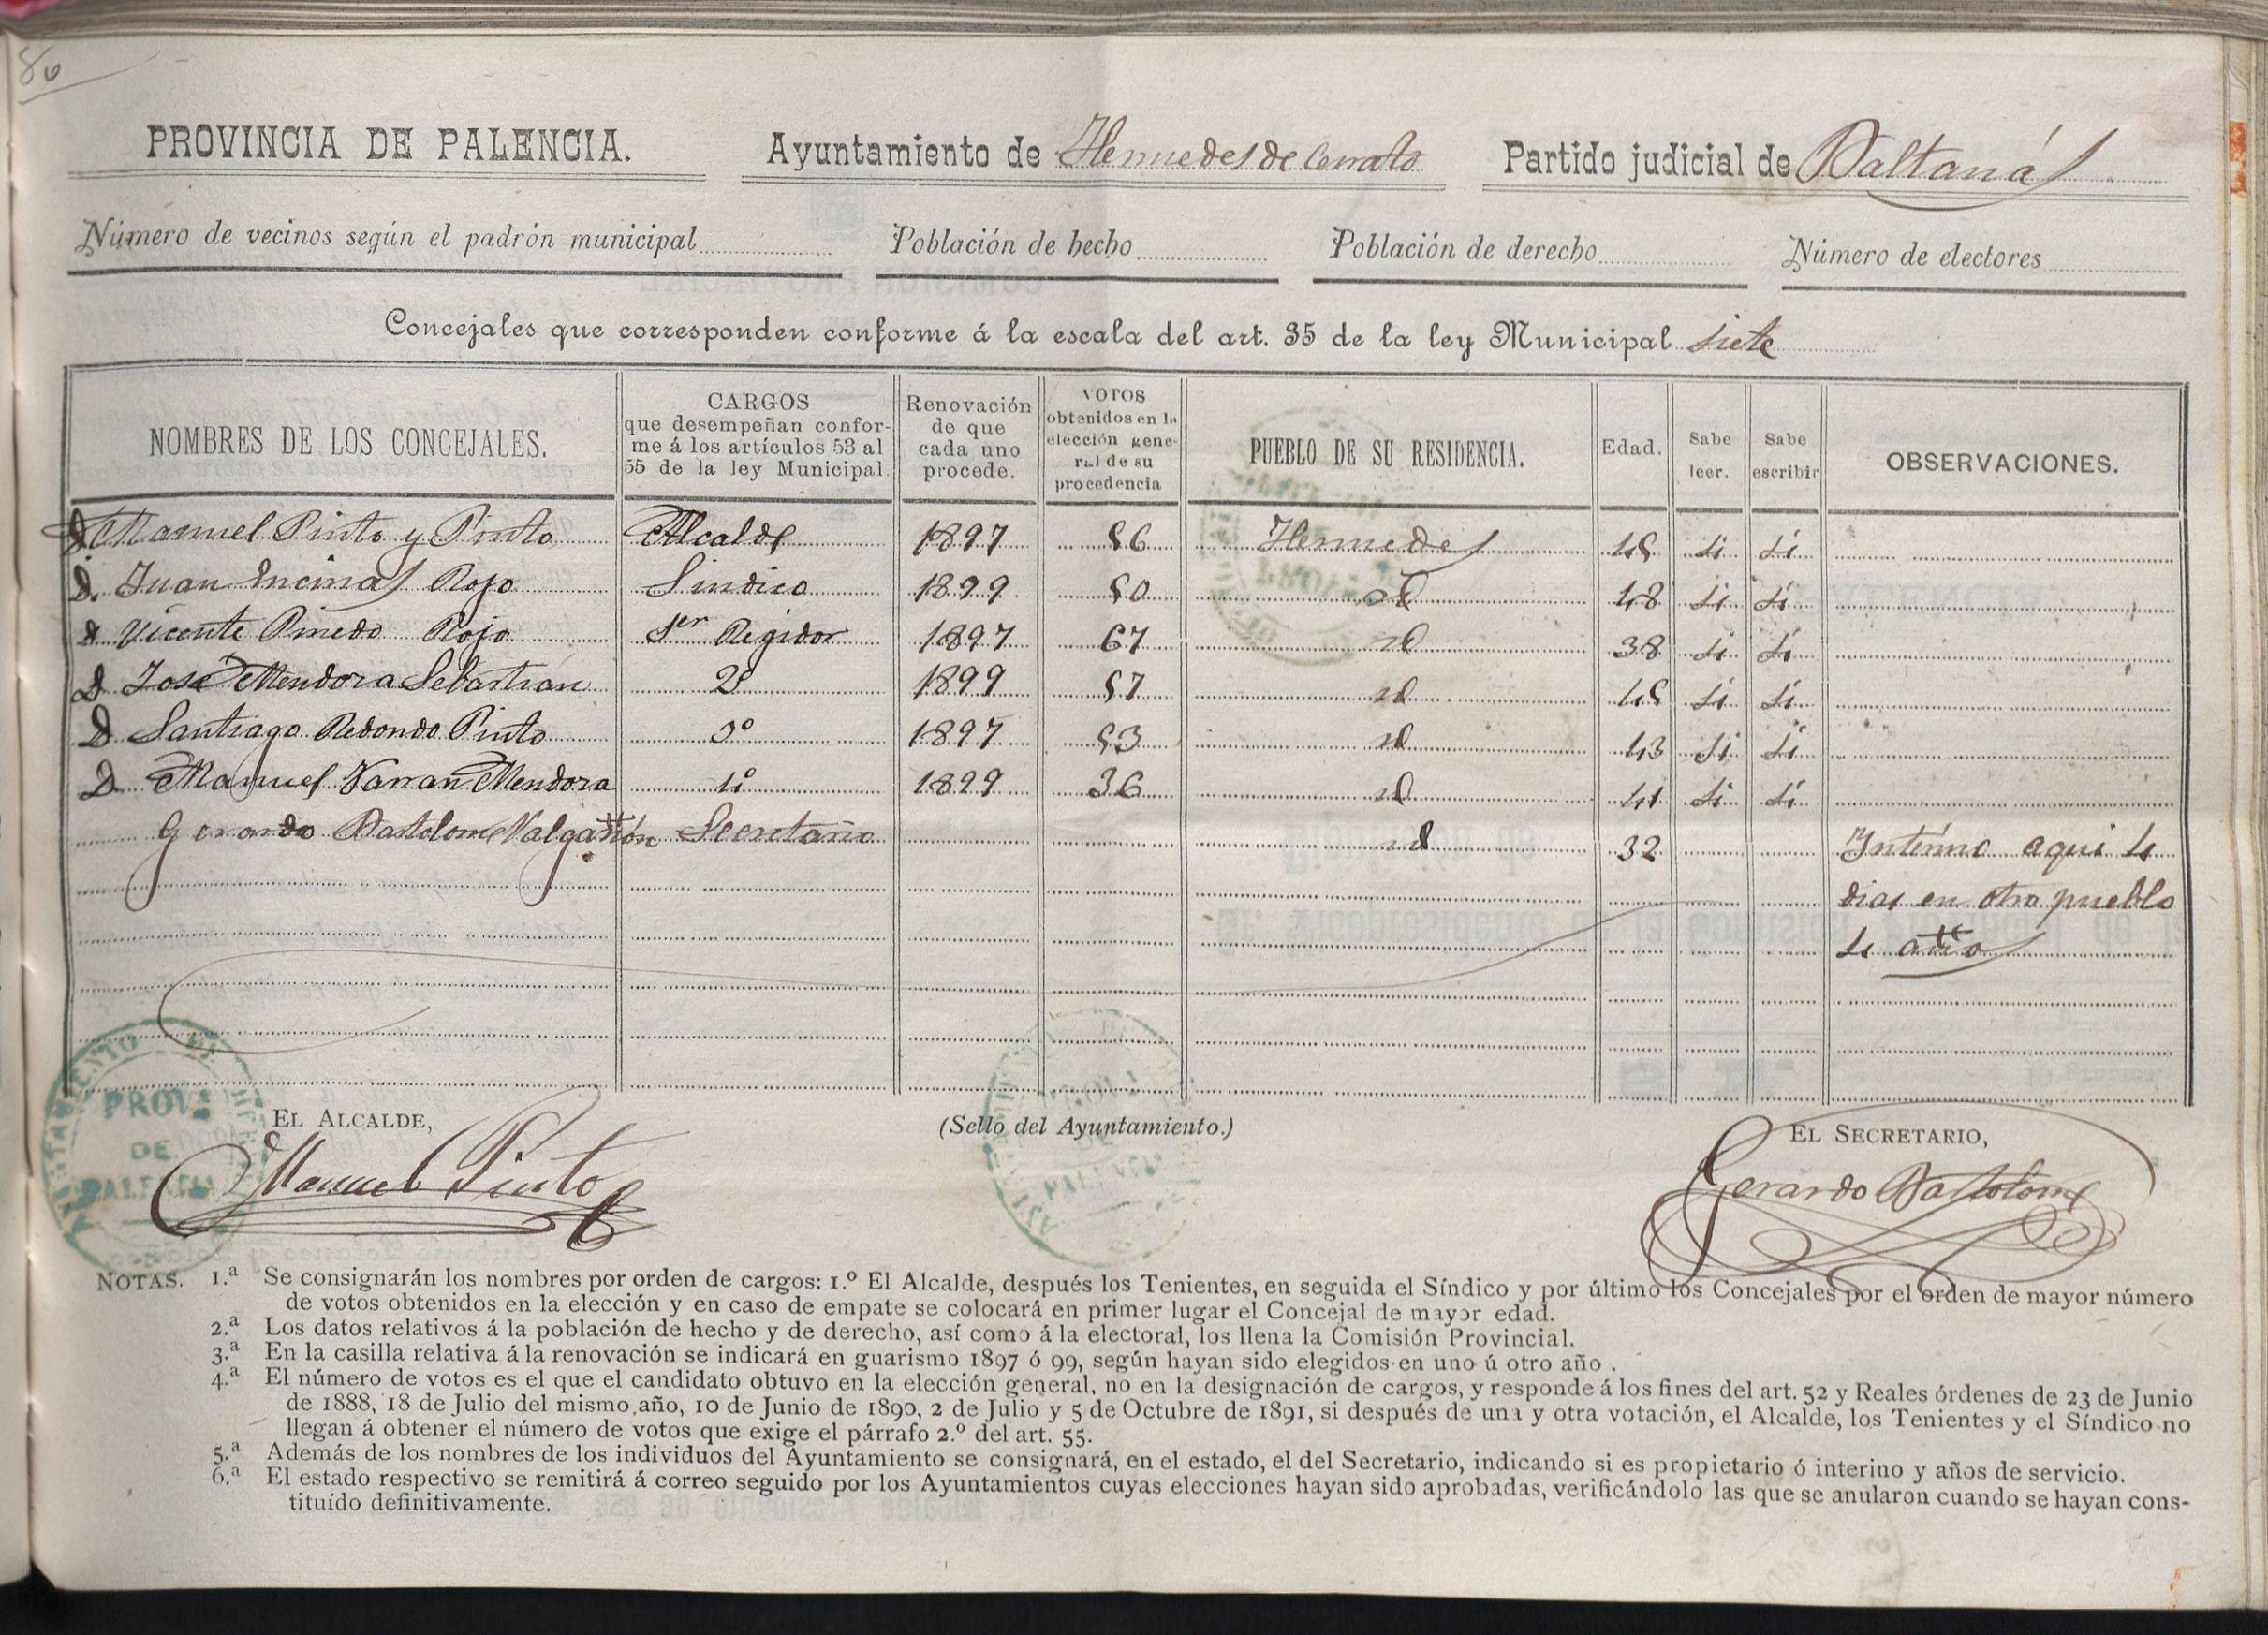 80
PROVINCIA DE PALENCIA. Ayuntamiento de Hermedes de Cerrato Partido judicial de Baltanás
Número de vecinos según el padrón municipal Población de hecho Población de derecho Número de electores
Concejales que corresponden conforme á la escala del art. 35 de la ley Municipal siete
NOMBRES DE LOS CONCEJALES. CARGOS que desempeñan conforme á los artículos 53 al 55 de la ley Municipal. Renovación de que cada uno procede. VOTOS obtenidos en la elección general de su procedencia PUEBLO DE SU RESIDENCIA. Edad. Sabe leer. Sabe escribir OBSERVACIONES.
D Manuel Pinto y Pinto Alcalde 1897 56 Hermedes 45 si si
D. Juan Encinas Rojo Sindico 1899 50 id 48 si si
D Vicente Pinedo Rojo 1er Regidor 1897 67 id 38 si si
D José Mendoza Sebastian 2º 1899 57 id 45 si si
D Santiago Redondo Pinto 3º 1897 53 id 43 si si
D Manuel Narran Mendoza 4º 1899 36 id 41 si si
Gerardo Bartolome Valgañón Secretario id 32 Interino aqui 4
dias en otro pueblo
4 años
PROVª DE PALENCIA
EL ALCALDE, (Sello del Ayuntamiento.) EL SECRETARIO,
Manuel Pinto Gerardo Bartolome
NOTAS. 1.ª Se consignarán los nombres por orden de cargos: 1.º El Alcalde, después los Tenientes, en seguida el Síndico y por último los Concejales por el orden de mayor número
de votos obtenidos en la elección y en caso de empate se colocará en primer lugar el Concejal de mayor edad.
2.ª Los datos relativos á la población de hecho y de derecho, así como á la electoral, los llena la Comisión Provincial.
3.ª En la casilla relativa á la renovación se indicará en guarismo 1897 ó 99, según hayan sido elegidos en uno ú otro año.
4.ª El número de votos es el que el candidato obtuvo en la elección general, no en la designación de cargos, y responde á los fines del art. 52 y Reales órdenes de 23 de Junio
de 1888, 18 de Julio del mismo año, 10 de Junio de 1890, 2 de Julio y 5 de Octubre de 1891, si después de una y otra votación, el Alcalde, los Tenientes y el Síndico no
llegan á obtener el número de votos que exige el párrafo 2.º del art. 55.
5.ª Además de los nombres de los individuos del Ayuntamiento se consignará, en el estado, el del Secretario, indicando si es propietario ó interino y años de servicio.
6.ª El estado respectivo se remitirá á correo seguido por los Ayuntamientos cuyas elecciones hayan sido aprobadas, verificándolo las que se anularon cuando se hayan cons-
tituído definitivamente.